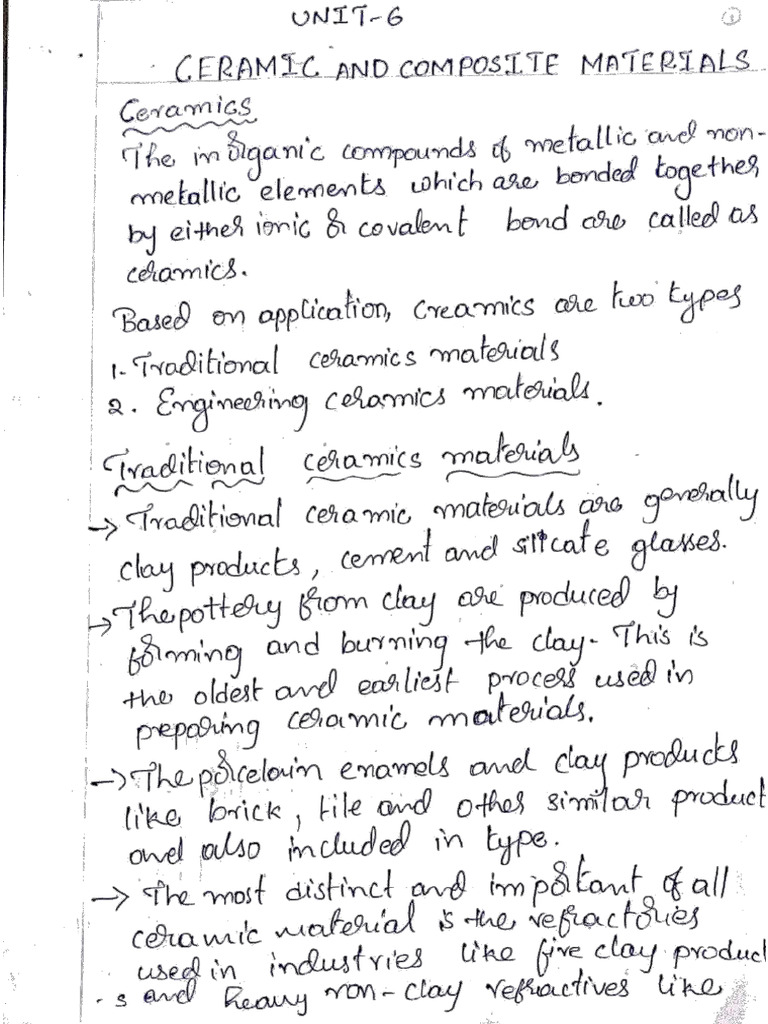 UNIT-6
1
CERAMIC AND COMPOSITE MATERIALS
Ceramics
The inorganic compounds of metallic and non-
metallic elements which are bonded together
by either ionic or covalent bond are called as
ceramics.
Based on application, Creamics are two types
1. Traditional ceramics materials
2. Engineering ceramics materials.
Traditional ceramics materials
→ Traditional ceramic materials are generally
clay products, cement and silicate glasses.
→ The pottery from clay are produced by
forming and burning the clay. This is
the oldest and earliest process used in
preparing ceramic materials.
→ The porcelain enamels and clay products
like brick, tile and other similar product
and also included in type.
→ The most distinct and important of all
ceramic material is the refractories
used in industries like fire clay product
-s and heavy non-clay refractives like